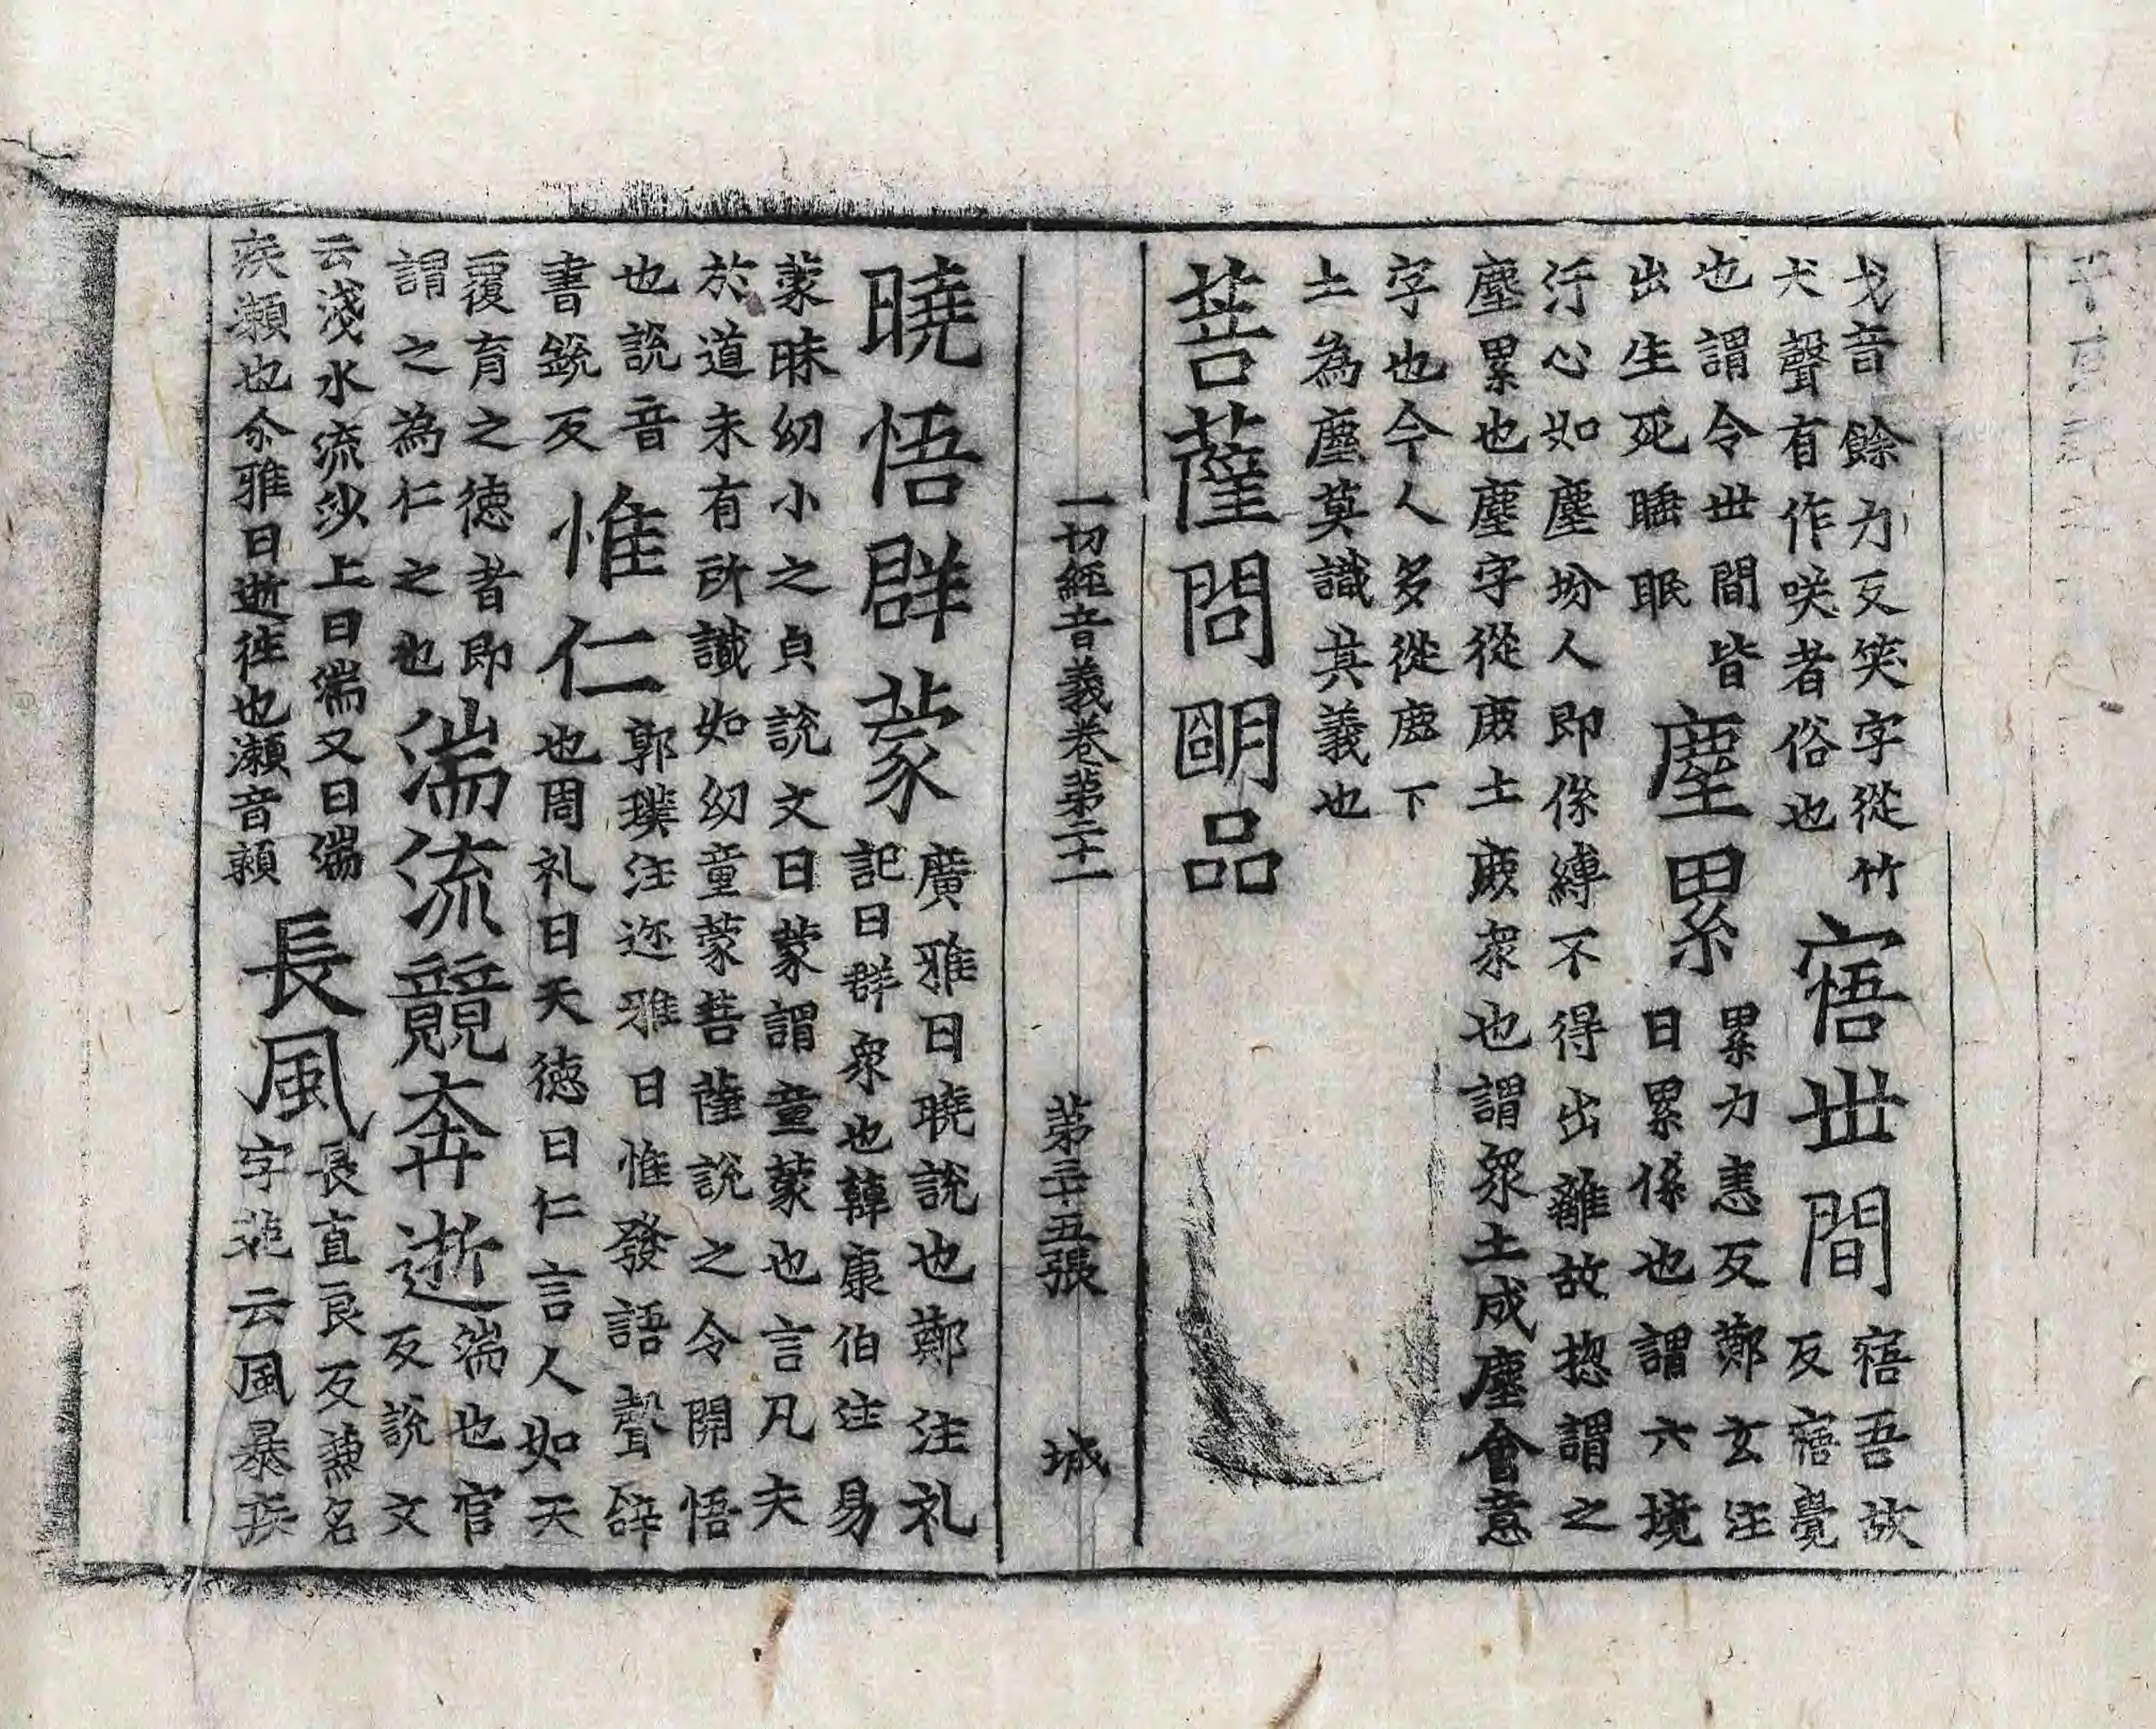 戈音餘力反笑字從竹
犬聲有作咲者俗也
寤世間
寤吾故
反寤覺
也謂令世間皆
出生死睡眠
塵累
累力恚反鄭玄注
曰累係也謂六境
汙心如塵坋人即係縛不得出離故揔謂之
塵累也塵字從鹿土鹿衆也謂衆土成塵會意
字也今人多從鹿下
土為塵莫識其義也
菩薩問朙品
一切經音義卷苐二十一 苐三十五張 城
曉悟群蒙
廣雅曰曉說也鄭注礼
記曰群衆也韓康伯注易
蒙昧幼小之皃說文曰蒙謂童蒙也言凡夫
於道未有所識如幼童蒙菩薩說之令開悟
也說音
書銳反
惟仁
郭璞注迩雅曰惟發語聲辝
也周礼曰天徳曰仁言人如天
覆育之徳者即
謂之為仁之也
湍流競奔逝
湍也官
反說文
云淺水流沙上曰湍又曰湍
疾瀨也尒雅曰逝徃也瀨音頼
長風
長直良反兼名
字苑云風暴疾